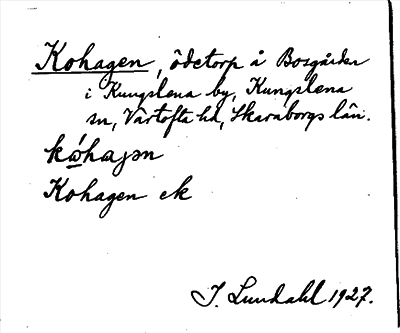 Kohagen, ödetorp å Bosgården
i Kungslena by, Kungslena
sn, Vartofta hd, Skaraborgs län.
kώhaȷən
Kohagen ek
I. Lundahl 1927.